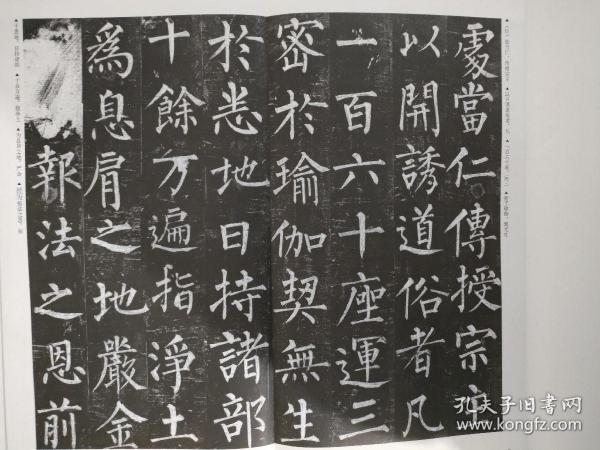 處當仁傳授宗
以開誘道俗者凡
一百六十座運三
密於瑜伽契無生
於悉地日持諸部
十餘万遍指淨土
爲息肩之地嚴金
報法之恩前
孔夫子旧书网
www.kongfz.com